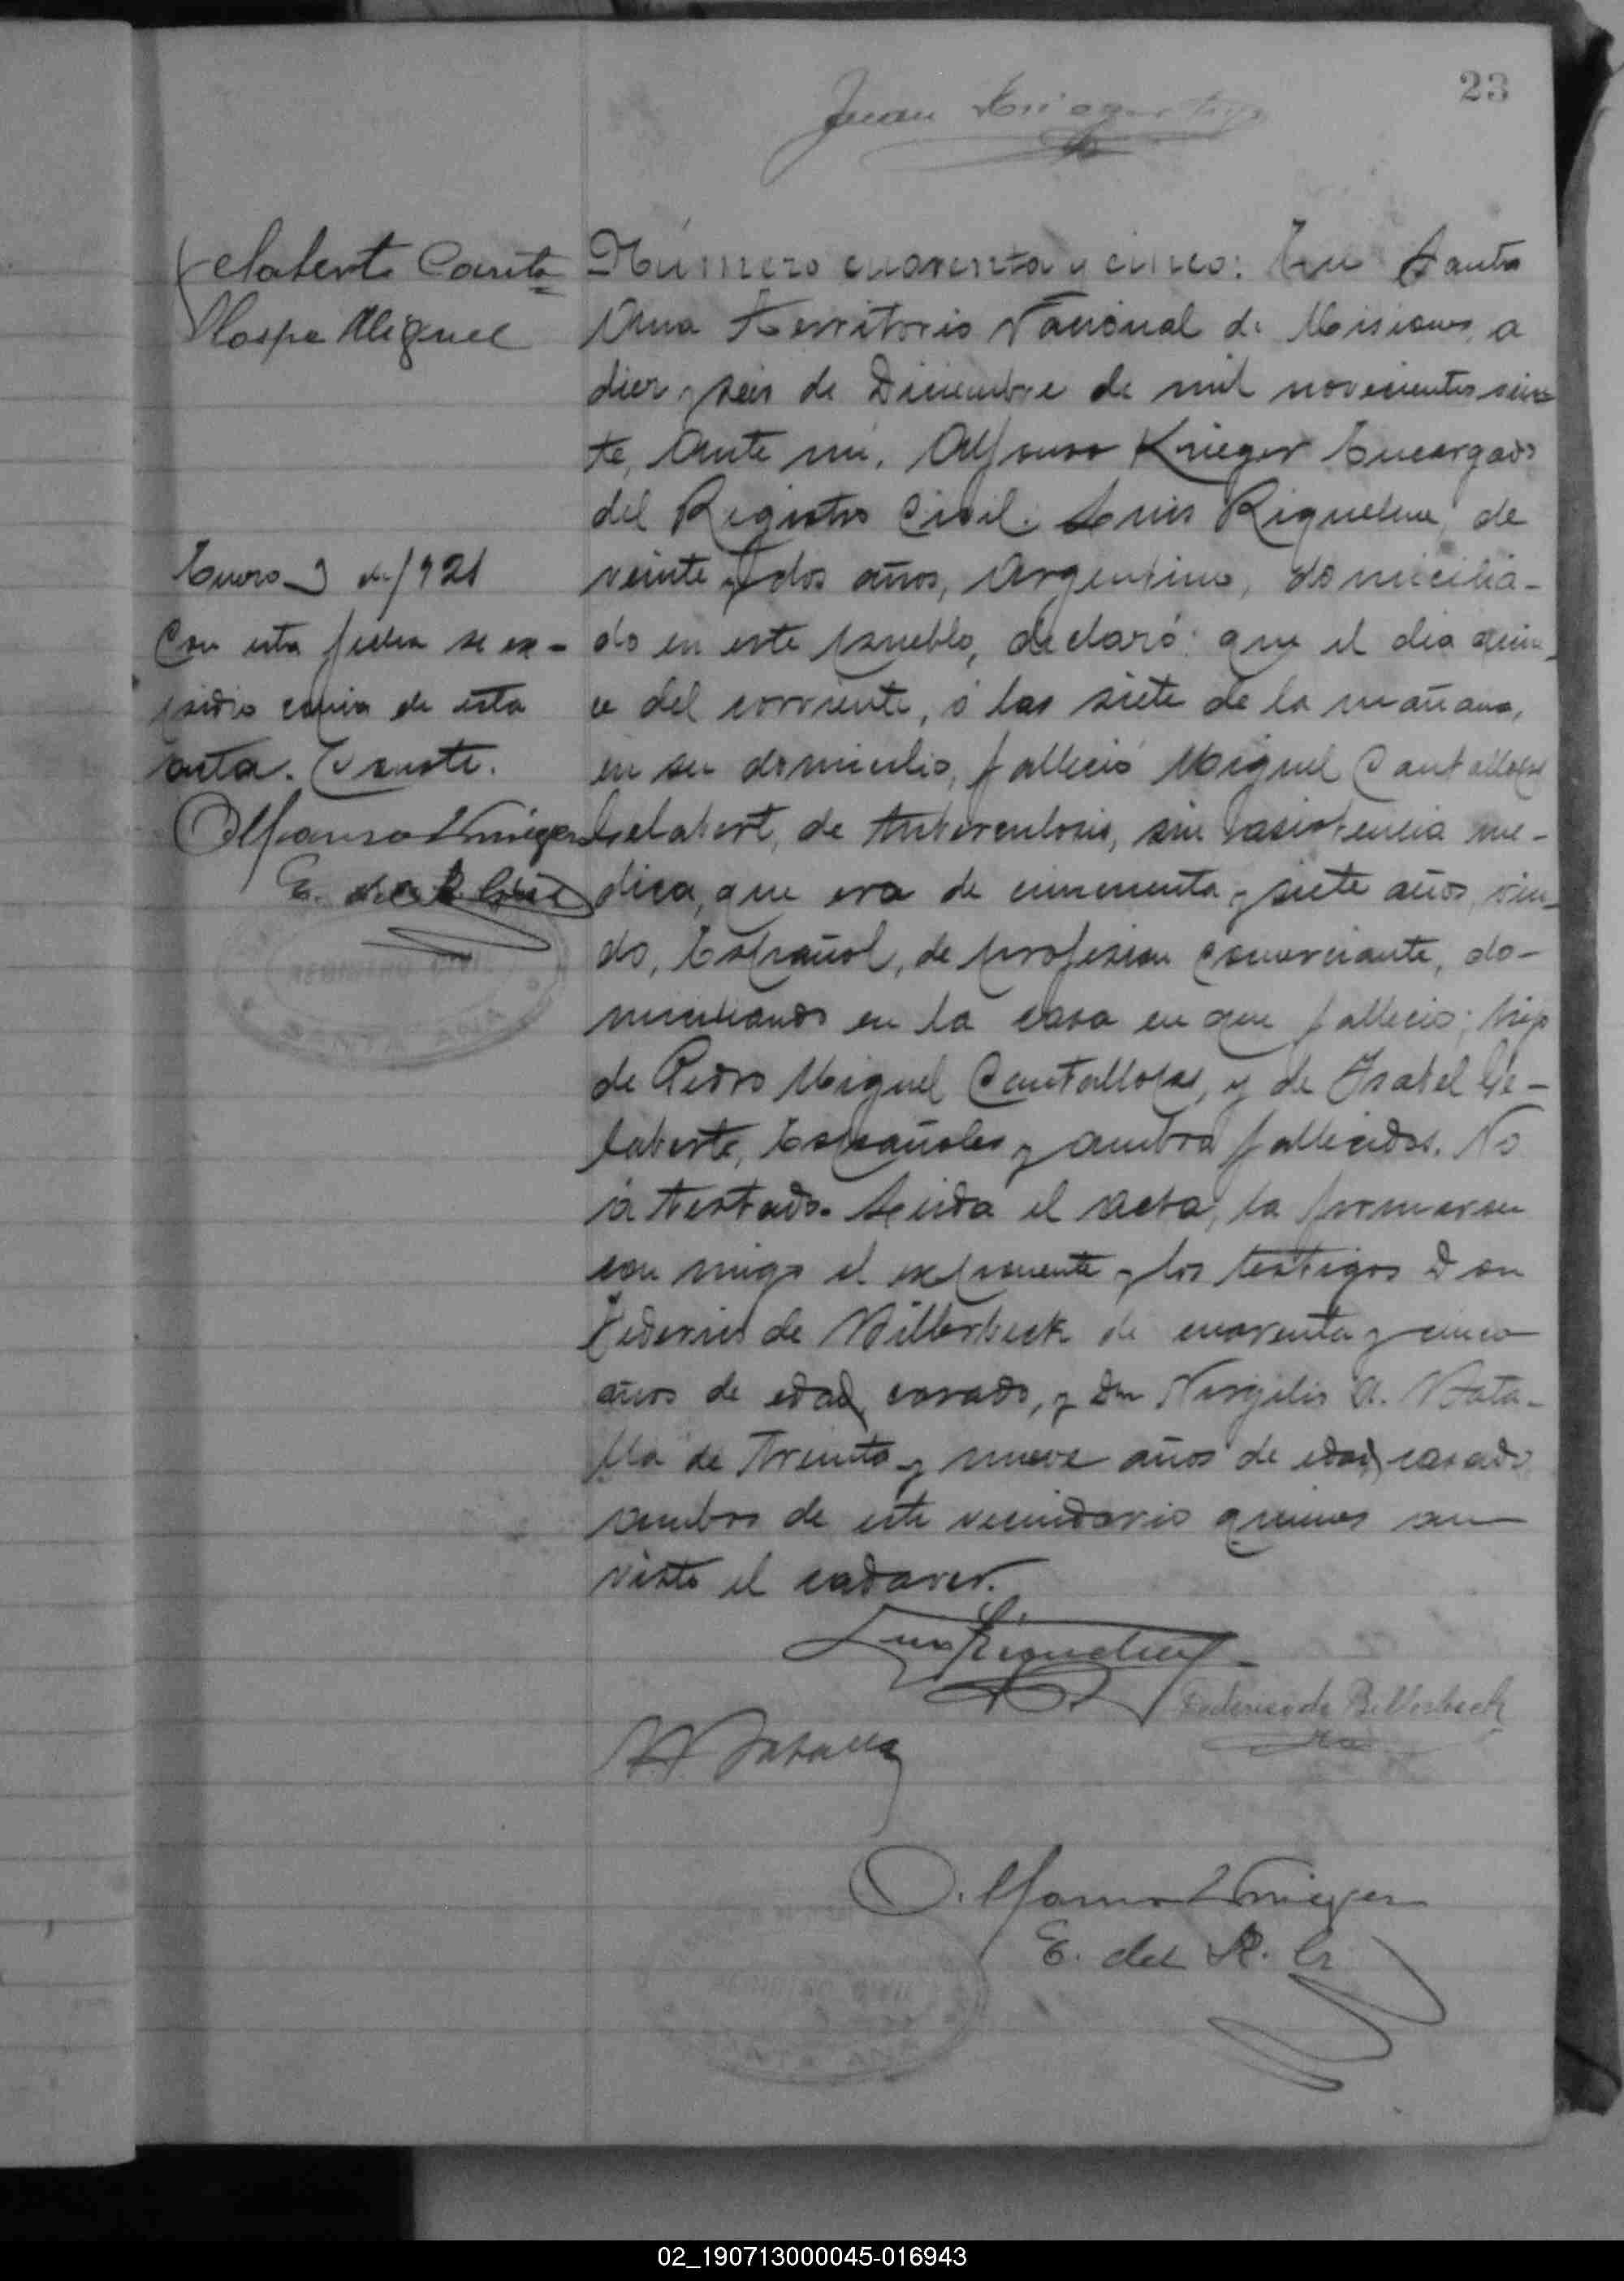 23
Juan
Gelaberto Canta=
llospe Miguel
Enero 3 de/921
Con esta fecha se ex-
pidio copia de esta
acta. Conste.
Alfonso Krieger
E. del R. Civil
Número cuarenta y cinco: En Santa
Ana Territorio Nacional de Misiones, a
diez y seis de Diciembre de mil novecientos vein
te, Ante mi, Alfonso Krieger Encargado
del Registro Civil. Luis Riquelme, de
veinte y dos años, Argentino, domicilia-
do en este pueblo, declaró: que el dia quin-
ce del corriente, á las siete de la mañana,
en su domicilio, fallecio Miguel Cantallops
Gelabert, de tuberculosis, sin asistencia me-
dica, que era de cincuenta y siete años, viu-
do, Español, de profesion comerciante, do-
miciliando en la casa en que fallecio; hijo
de Pedro Miguel Cantallops, y de Isabel Ge-
laberte, Españoles y ambos fallecidos. No
a testado. Leida el acta, la firmaron
con migo el exponente y los testigos Don
Federico de Billerbeck de cuarenta y cinco
años de edad, casado, y Dn Virgilio A. Bata-
lla de Treinta y nueve años de edad, casado
ambos de este vecindario quienes an
visto el cadaver.
Luis Riquelme
Federico de Billerbeck
V A Batalla
Alfonso Krieger
E. del R. C.
02_190713000045-016943